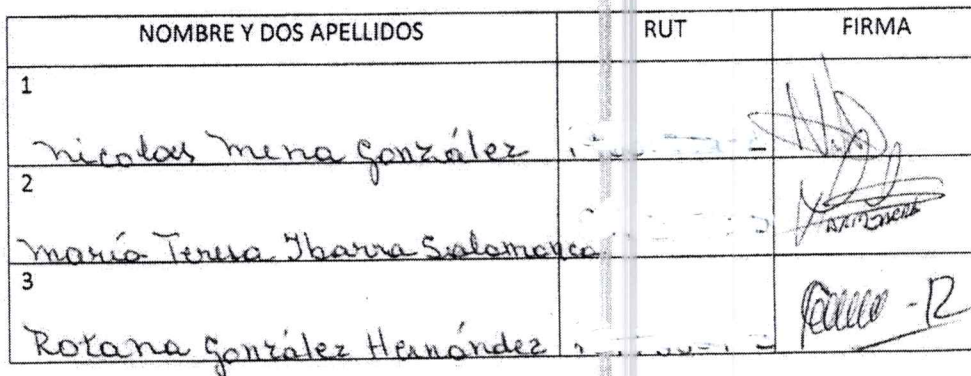 NOMBRE Y DOS APELLIDOS RUT FIRMA
1
Nicolas Mena González
2
María Teresa Ibarra Salamanca
3
Roxana González Hernández